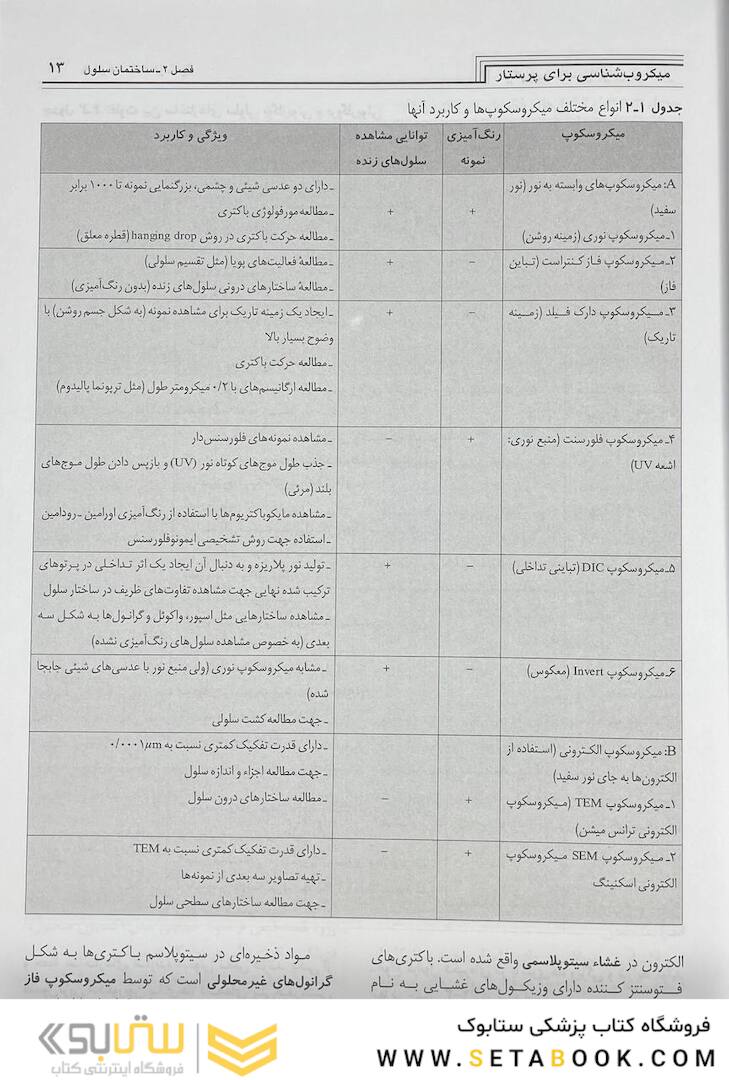 میکروب‌شناسی برای پرستار
فصل ۲ـ ساختمان سلول ۱۳
جدول ۱ـ۲ انواع مختلف میکروسکوپ‌ها و کاربرد آنها
میکروسکوپ
رنگ‌آمیزی
نمونه
توانایی مشاهده
سلول‌های زنده
ویژگی و کاربرد
A: میکروسکوپ‌های وابسته به نور (نور
سفید)
۱ـ میکروسکوپ نوری (زمینه روشن)
+
+
ـ دارای دو عدسی شیئی و چشمی، بزرگنمایی نمونه تا ۱۰۰۰ برابر
ـ مطالعه مورفولوژی باکتری
ـ مطالعه حرکت باکتری در روش hanging drop (قطره معلق)
۲ـ میکروسکوپ فاز کنتراست (تباین
فاز)
−
+
ـ مطالعۀ فعالیت‌های پویا (مثل تقسیم سلولی)
ـ مطالعۀ ساختارهای درونی سلول‌های زنده (بدون رنگ‌آمیزی)
۳ـ میکروسکوپ دارک فیلد (زمینه
تاریک)
−
+
ـ ایجاد یک زمینه تاریک برای مشاهده نمونه (به شکل جسم روشن) با
وضوح بسیار بالا
ـ مطالعه حرکت باکتری
ـ مطالعه ارگانیسم‌های با ۰/۲ میکرومتر طول (مثل ترپونما پالیدوم)
۴ـ میکروسکوپ فلورسنت (منبع نوری:
اشعه UV)
+
−
ـ مشاهده نمونه‌های فلورسنس‌دار
ـ جذب طول موج‌های کوتاه نور (UV) و بازپس دادن طول موج‌های
بلند (مرئی)
ـ مشاهده مایکوباکتریوم‌ها با استفاده از رنگ‌آمیزی اورامین ـ رودامین
ـ استفاده جهت روش تشخیصی ایمونوفلورسنس
۵ـ میکروسکوپ DIC (تباینی تداخلی)
−
+
ـ تولید نور پلاریزه و به دنبال آن ایجاد یک اثر تداخلی در پرتوهای
ترکیب شده نهایی جهت مشاهده تفاوت‌های ظریف در ساختار سلول
ـ مشاهده ساختارهایی مثل اسپور، واکوئل و گرانول‌ها به شکل سه
بعدی (به خصوص مشاهده سلول‌های رنگ‌آمیزی نشده)
۶ـ میکروسکوپ Invert (معکوس)
−
+
ـ مشابه میکروسکوپ نوری (ولی منبع نور با عدسی‌های شیئی جابجا
شده)
ـ جهت مطالعه کشت سلولی
B: میکروسکوپ الکترونی (استفاده از
الکترون‌ها به جای نور سفید)
۱ـ میکروسکوپ TEM (میکروسکوپ
الکترونی ترانس میشن)
+
−
ـ دارای قدرت تفکیک کمتری نسبت به ۰/۰۰۰۱µm
ـ جهت مطالعه اجزاء و اندازه سلول
ـ مطالعه ساختارهای درون سلول
۲ـ میکروسکوپ SEM میکروسکوپ
الکترونی اسکنینگ
+
−
ـ دارای قدرت تفکیک کمتری نسبت به TEM
ـ تهیه تصاویر سه بعدی از نمونه‌ها
ـ جهت مطالعه ساختارهای سطحی سلول
الکترون در غشاء سیتوپلاسمی واقع شده است. باکتری‌های
فتوسنتز کننده دارای وزیکول‌های غشایی به نام
مواد ذخیره‌ای در سیتوپلاسم باکتری‌ها به شکل
گرانول‌های غیرمحلولی است که توسط میکروسکوپ فاز
فروشگاه کتاب پزشکی ستابوک
WWW.SETABOOK.COM
ستابوک
فروشگاه اینترنتی کتاب